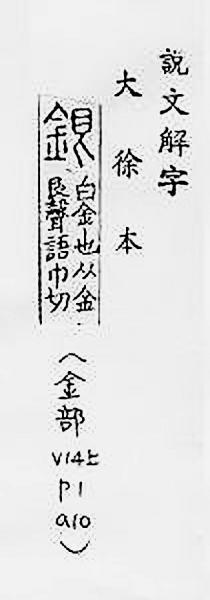 說文解字
大徐本
銀
白金也从金
艮聲語巾切
(金部 V14上 P1 a10)